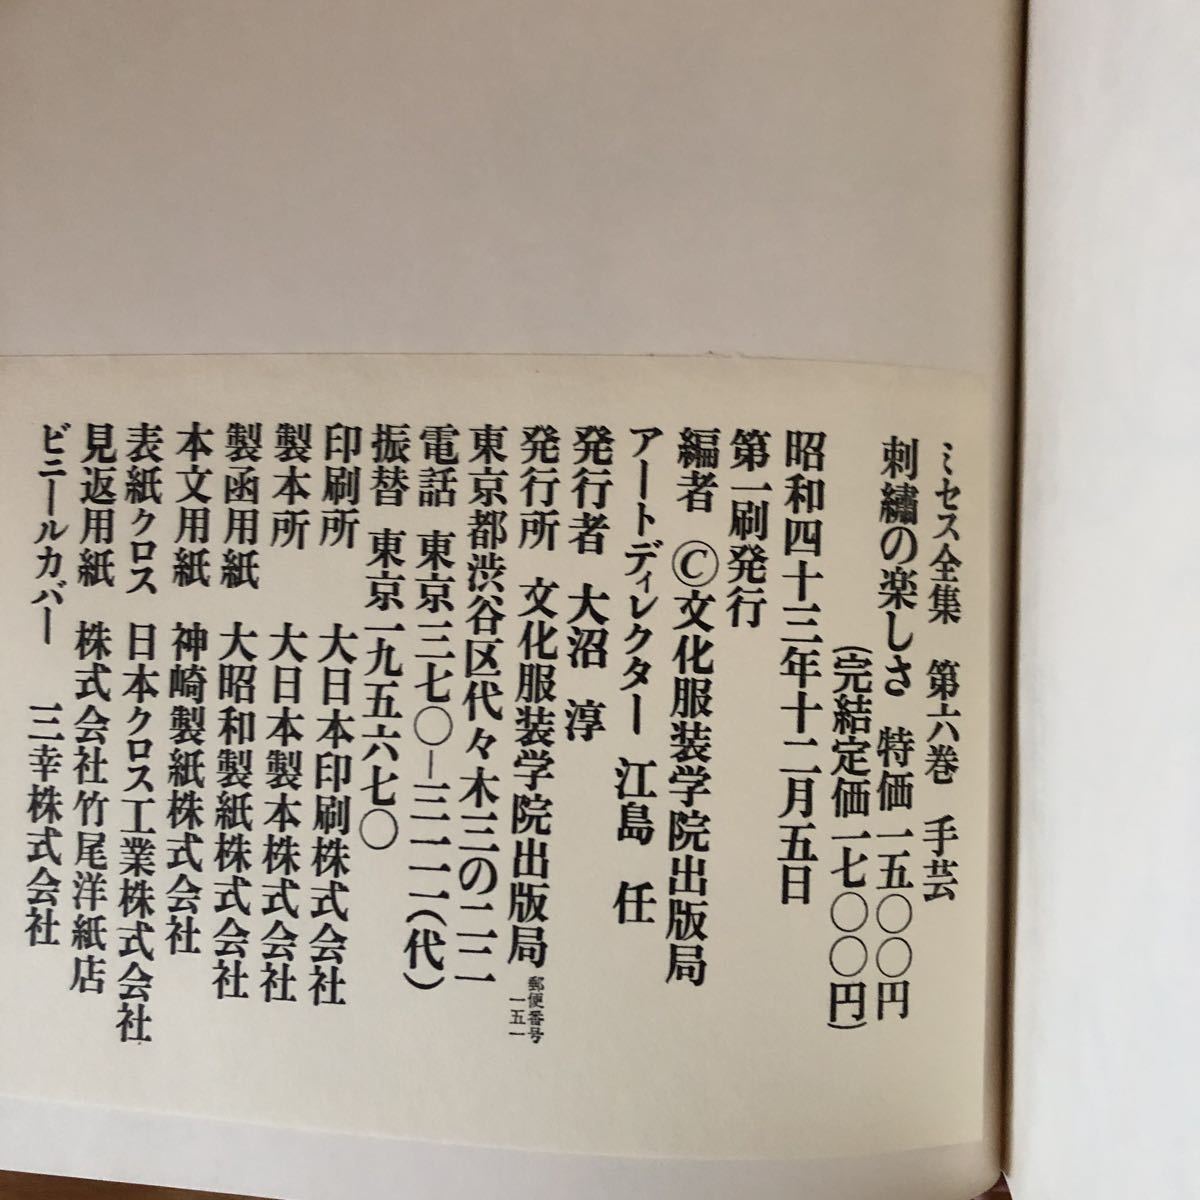 ミセス全集　第六巻　手芸
刺繡の楽しさ　特価一五〇〇円
(完結定価一七〇〇円)
昭和四十三年十二月五日
第一刷発行
編者　©文化服装学院出版局
アートディレクター　江島　任
発行者　大沼　淳
発行所　文化服装学院出版局
郵便番号
一五一
東京都渋谷区代々木三の二二
電話　東京三七〇−三一一一(代)
振替　東京一九五六七〇
印刷所　大日本印刷株式会社
製本所　大日本製本株式会社
製函用紙　大昭和製紙株式会社
本文用紙　神崎製紙株式会社
表紙クロス　日本クロス工業株式会社
見返用紙　株式会社竹尾洋紙店
ビニールカバー　三幸株式会社